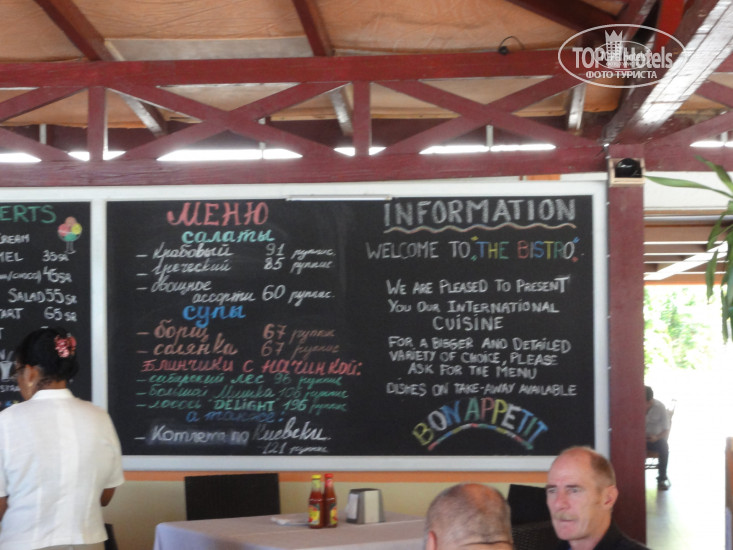 TOP Hotels
ФОТО ТУРИСТА
ERTS
CREAM
MEL 35SR
45SR
SALAD 55SR
TART 65SR
МЕНЮ
САЛАТЫ
– Крабовый 91 рупис.
– Греческий 85 рупис.
– Овощное
ассорти 60 рупис.
СУПЫ
– борщ 67 рупис
– солянка 67 рупис
Блинчики с начинкой:
– сибирский лес 96 рупис
– большой Мишка 106 рупис
– лосось "DELIGHT 196 рупис
а также:
– Котлета по Киевски
121 рупис
INFORMATION
WELCOME TO "THE BISTRO"
WE ARE PLEASED TO PRESENT
YOU OUR INTERNATIONAL
CUISINE
FOR A BIGGER AND DETAILED
VARIETY OF CHOICE, PLEASE
ASK FOR THE MENU
DISHES ON TAKE-AWAY AVAILABLE
BON APPETIT